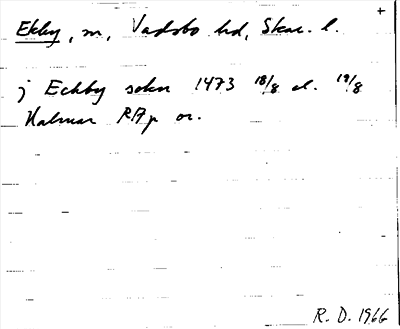 +
Ekby, sn, Vadsbo hd, Skar. l.
j Eckby sokn 1473 18/8 el. 19/8
Kalmar RAp or.
R. D. 1966